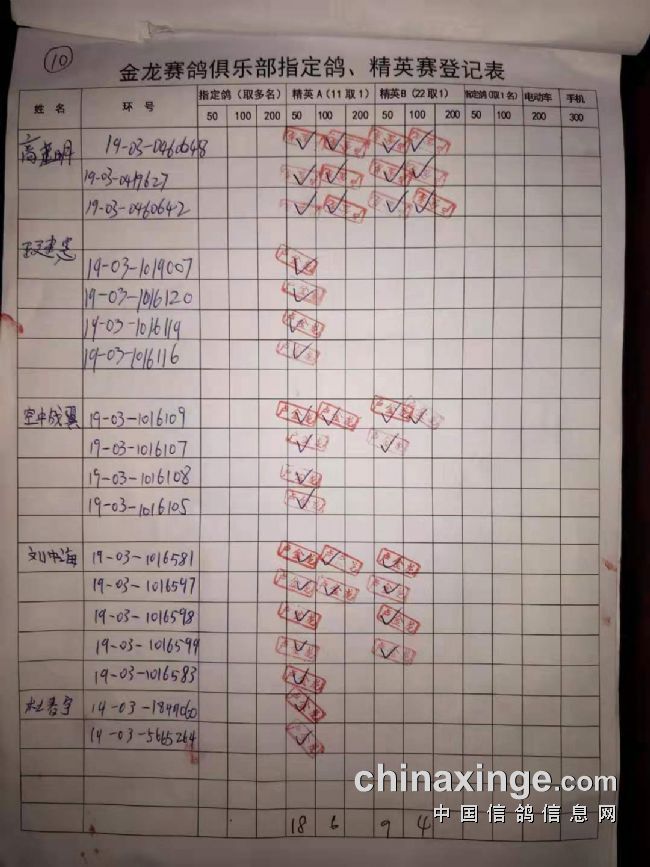 10
金龙赛鸽俱乐部指定鸽、精英赛登记表
姓名 环号 指定鸽（取多名） 精英A（11取1） 精英B（22取1） 指定鸽（取1名） 电动车 手机
50 100 200 50 100 200 50 100 200 50 100 200 300
19-03-0460648
19-03-0419627
19-03-0460642
19-03-1019007
19-03-1016120
19-03-1016119
19-03-1016116
空中战翼 19-03-1016109
19-03-1016107
19-03-1016108
19-03-1016105
刘中海 19-03-1016581
19-03-1016597
19-03-1016598
19-03-1016599
19-03-1016583
19-03-1849060
19-03-5665264
18 6 9 4
chinaxinge.com
中国信鸽信息网